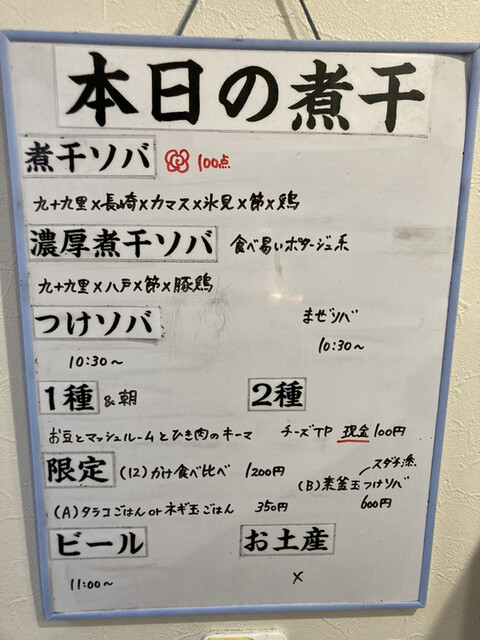 本日の煮干
煮干ソバ 100点
九十九里×長崎×カマス×氷見×節×鶏
濃厚煮干ソバ 食べ易いポタージュ系
九十九里×八戸×節×豚鶏
つけソバ まぜソバ
10:30〜 10:30〜
1種 &朝 2種
お豆とマッシュルームとひき肉のキーマ チーズTP 現金100円
限定 (12)かけ食べ比べ 1200円
スダチ添
(B)素釜玉つけソバ
(A)タラコごはんorネギ玉ごはん 350円 600円
ビール お土産
11:00〜 ×